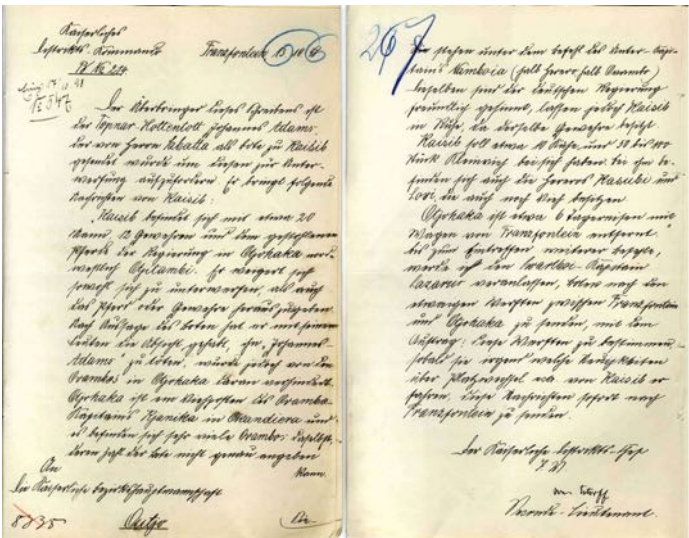 Kaiserliches
Distrikts-Kommando
Franzfontein 15/10 98
IV No 234
Der Überbringer dieses Schreibens ist
der Topnar-Hottentott Johannes Adams,
der von Herrn als Bote zu Kaisib
gesendet wurde um diesen zur Unter-
werfung aufzufordern. Er bringt folgende
Nachrichten von Kaisib:
"Kaisib befindet sich mit etwa 20
Mann, 12 Gewehren und dem gestohlenen
Pferde der Regierung in Ojohaka nord-
westlich Ojitambi. Er weigert sich
sowohl sich zu unterwerfen, als auch
das Pferd oder Gewehre herauszugeben.
Nach Aussage des Boten hat er mit seinen
Leuten die Absicht gehabt, ihn, Johannes
Adams zu töten, wurde jedoch von den
Ovambos in Ojohaka daran verhindert.
Ojohaka ist ein Viehposten des Ovambo
Kapitains Kjanika in Okandiera und
es befinden sich sehr viele Ovambos daselbst,
deren Zahl der Bote nicht genau angeben
kann.
An
die Kaiserliche Bezirkshauptmannschaft
Outjo
Die
267
Die stehen unter dem Befehl des Unter-Kapi-
tains Kamboia (halb Herero halb Ovambo)
dieselben sind der deutschen Regierung
freundlich gesinnt, lassen jedoch Kaisib
in Ruhe, da derselbe Gewehre besitzt
Kaisib soll etwa 10 Kühe und 50 bis 100
Stück Kleinvieh bei sich haben; bei ihm be-
finden sich auch die Hereros Kasubi und
Lovi, die auch noch Vieh besitzen
Ojohaka ist etwa 6 Tagereisen mit
Wagen von Franzfontein entfernt."
Bis zum Eintreffen weiterer Befehle,
werde ich den Swartboi-Kapitain
Lazarus veranlassen, Boten nach den
etwaigen Werften zwischen Franzfontein
und Ojohaka zu senden, mit dem
Auftrag: diese Werften zu bestimmen,
sobald sie irgend welche Neuigkeiten
über Platzwechsel von Kaisib er-
fahren, diese Nachrichten sofort nach
Franzfontein zu senden.
Der Kaiserliche Distrikts-Chef
Seconde-Lieutenant.